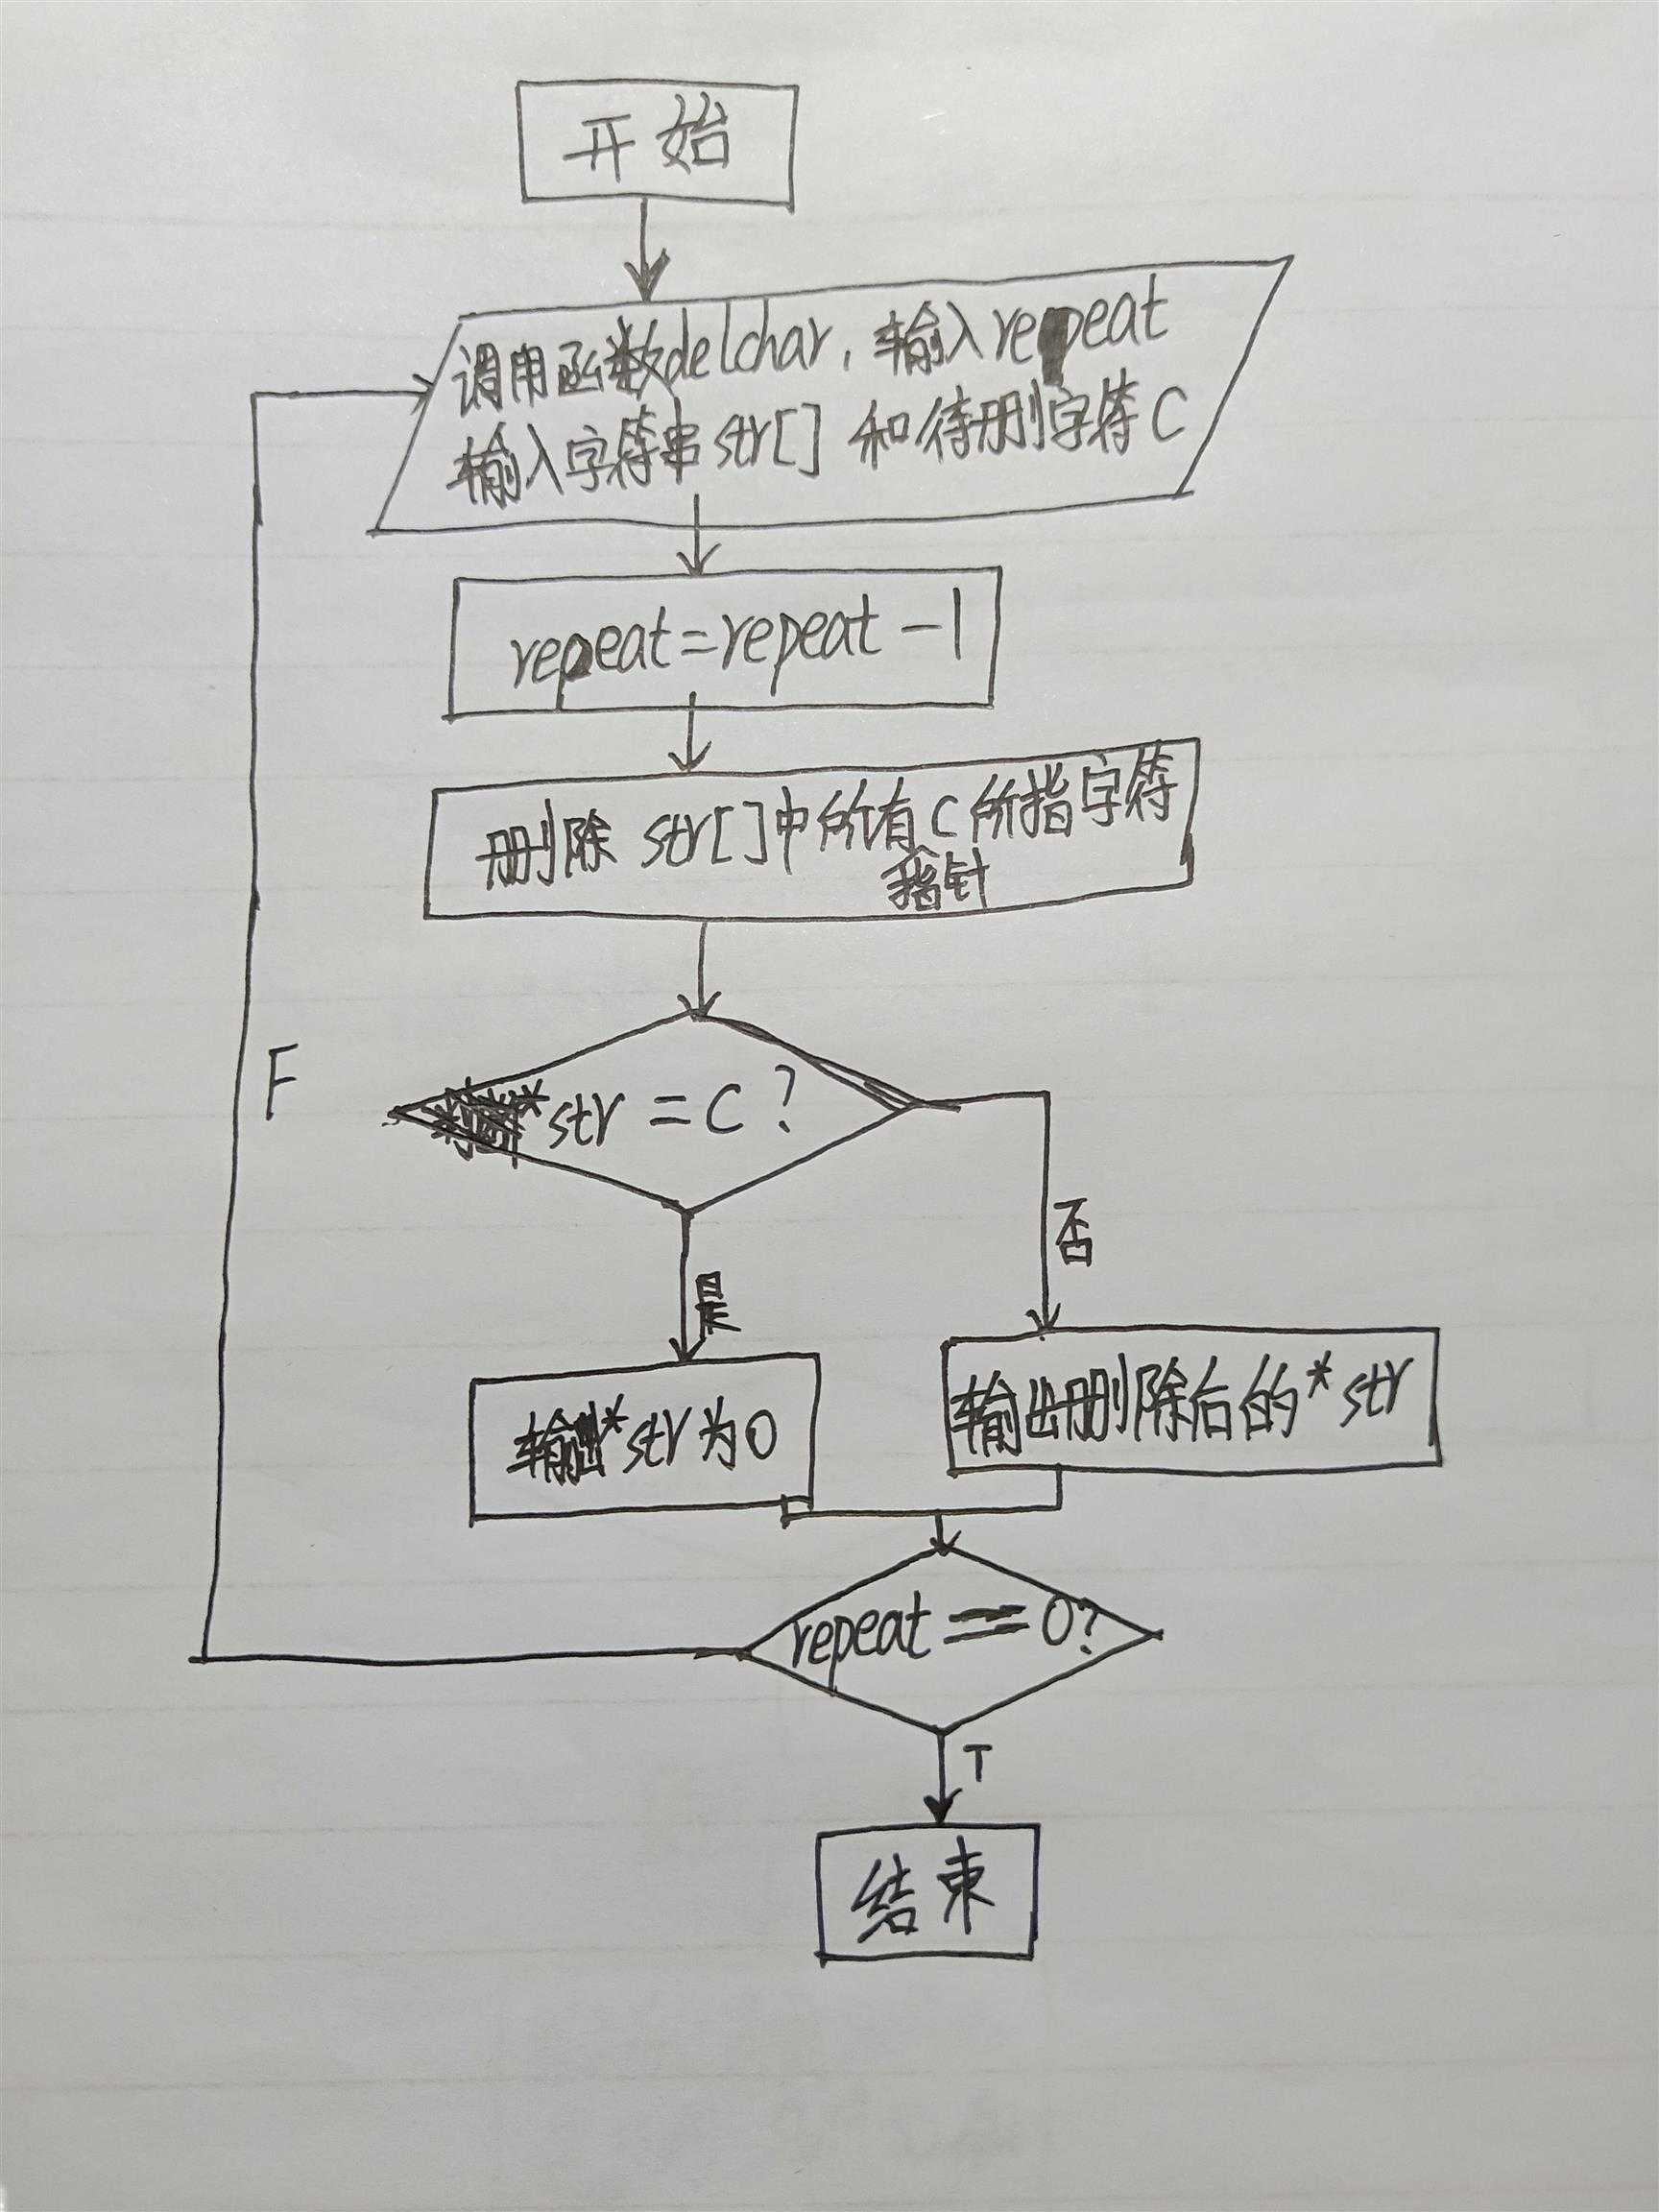 开始
调用函数delchar，输入repeat
输入字符串str[] 和待删字符C
repeat=repeat-1
删除 str[]中所有C所指字符
指针
*str=C?
F
否
是
输出*str为0
输出删除后的*str
repeat==0?
T
结束